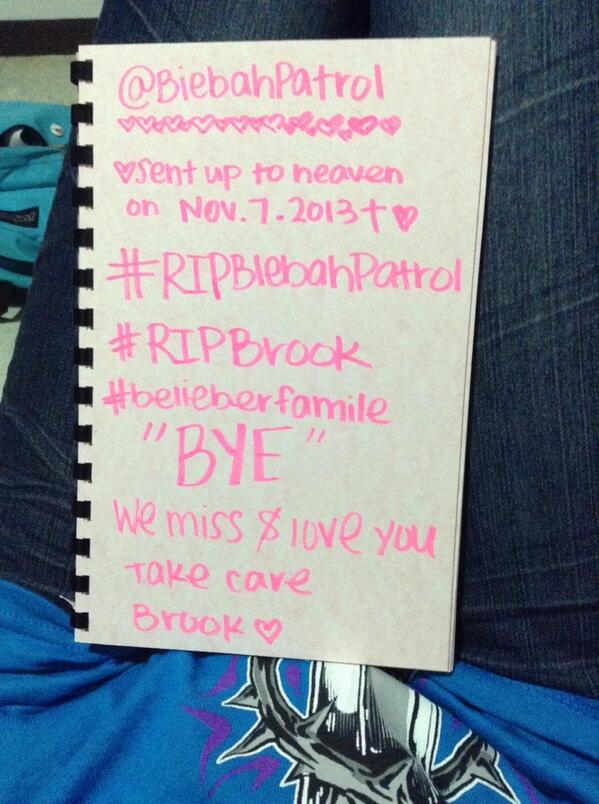 @BiebahPatrol
♡sent up to heaven
on Nov. 7. 2013✝♡
#RIPBIebahPatrol
#RIPBrook
#belieberfamile
"BYE"
We miss & love you
Take care
Brook♡